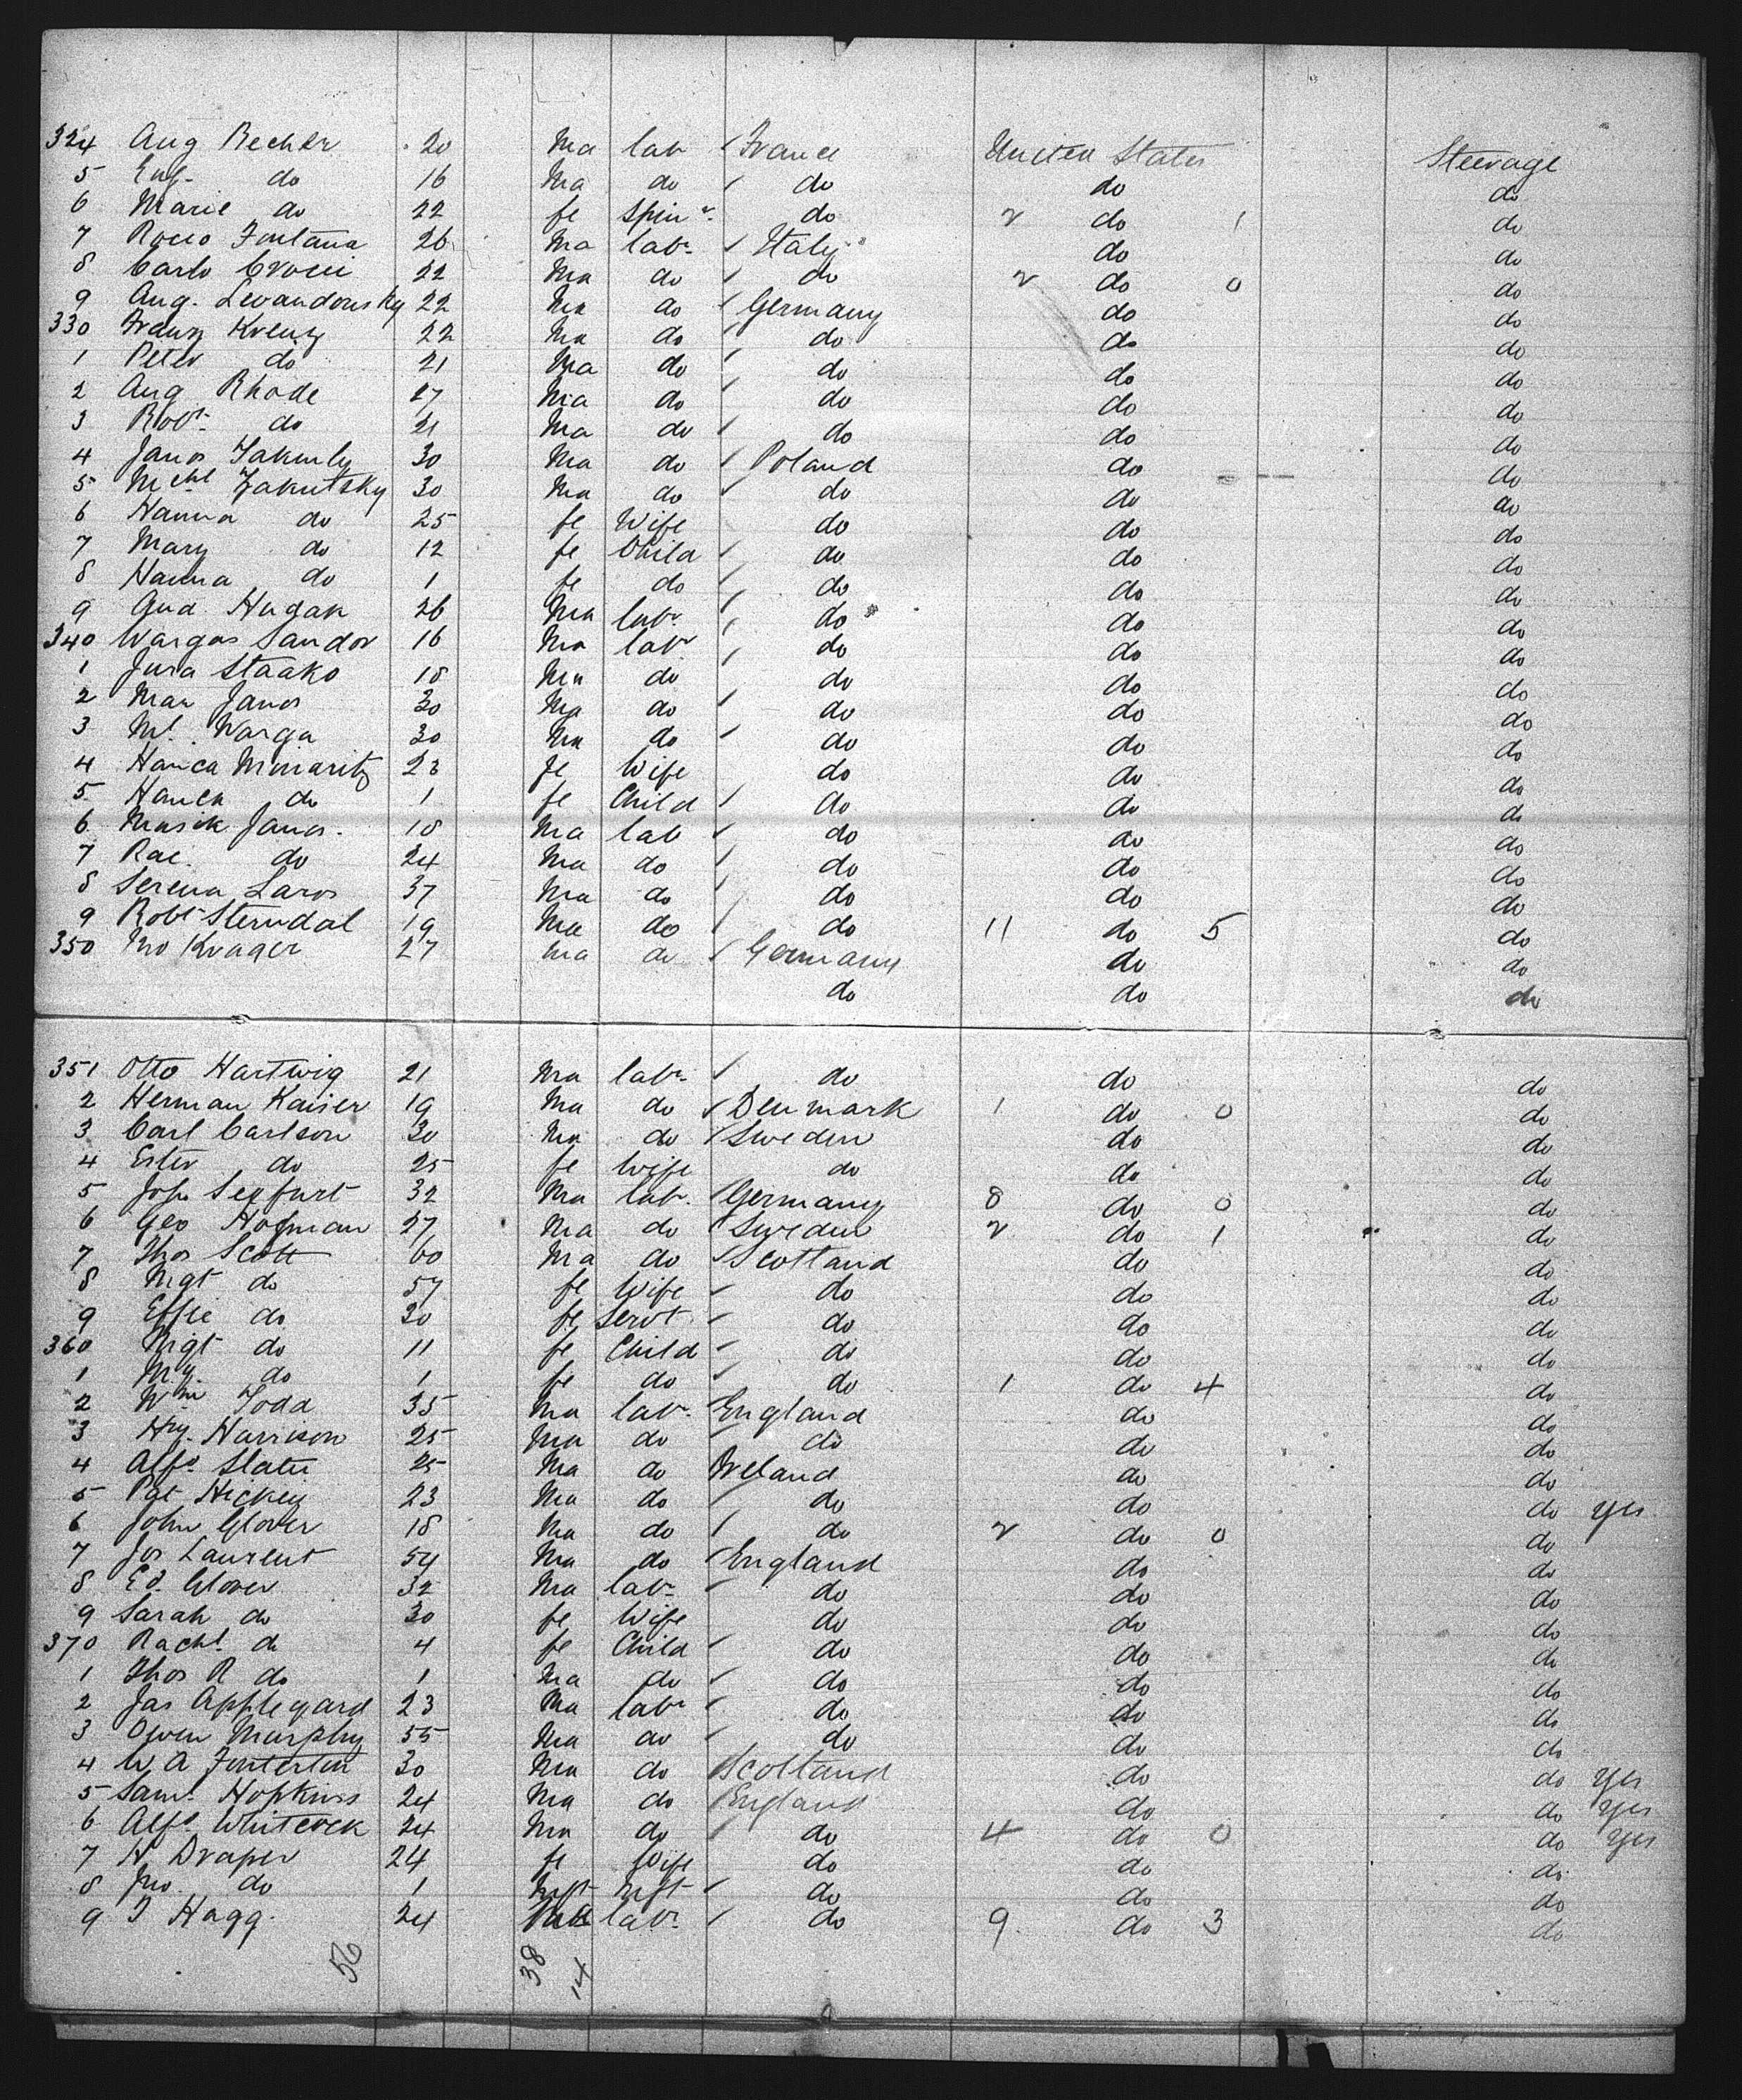 324 Aug Bechler 20 Ma lab France United States Steerage
5 Eug. do 16 Ma do do do do
6 Marie do 22 fe Spinr do 2 do 1 do
7 Rocco Fontana 26 Ma labr Italy do do
8 Carlo Crocci 22 Ma do do 2 do 0 do
9 Aug. Levandousky 22 Ma do Germany do do
330 Franz Krenz 22 Ma do do do do
1 Peter do 21 Ma do do do do
2 Aug Rhode 27 Ma do do do do
3 Robt do 21 Ma do do do do
4 Janos 30 Ma do Poland do do
5 Mchl Zakutsky 30 Ma do do do do
6 Hanna do 25 fe Wife do do do
7 Mary do 12 fe Child do do do
8 Hanna do 1 fe do do do do
9 And. Hugak 26 Ma labr do do do
340 Wargas Sandor 16 Ma labr do do do
1 Jura Staako 18 Ma do do do do
2 Mar Janos 30 Ma do do do do
3 Ml. Warga 30 Ma do do do do
4 Hanca 23 fe Wife do do do
5 Hanca do 1 fe Child do do do
6 Musik Janos. 18 Ma lab do do do
7 Rac. do 24 Ma do do do do
8 Serena Laros 37 Ma do do do do
9 Robt Sterndal 19 Ma do do 11 do 5 do
350 Jno Kruger 27 Ma do Germany do do
do do do
351 Otto Hartwig 21 Ma labr do do do
2 Herman Kaiser 19 Ma do Denmark 1 do 0 do
3 Carl Carlson 30 Ma do Sweden do do
4 Ester do 25 fe Wife do do do
5 Joh Segfurt 32 Ma labr. Germany 8 do 0 do
6 Geo Hofman 27 Ma do Sweden 2 do 1 do
7 Thos Scott 60 Ma do Scotland do do
8 Mgt do 57 fe Wife do do do
9 Effie do 20 fe Servt. do do do
360 Mgt do 11 fe Child do do do
1 My. do 1 fe do do 1 do 4 do
2 Wm Todd 35 Ma labr. England do do
3 Hy. Harrison 25 Ma do do do do
4 Alfd. Slater 25 Ma do Ireland do do
5 Pat Hickey 23 Ma do do do do yes
6 John Glover 18 Ma do do 2 do 0 do
7 Jos Laurent 54 Ma do England do do
8 Ed. Glover 32 Ma labr do do do
9 Sarah do 30 fe Wife do do do
370 Rachl. do 4 fe Child do do do
1 Thos R do 1 Ma do do do do
2 Jas Appleyard 23 Ma labr do do do
3 Owen Murphy 55 Ma do do do do
4 W A 30 Ma do Scotland do do yes
5 Saml. Hopkins 24 Ma do England do do yes
6 Alfd. Whitcock 24 Ma do do 4 do 0 do yes
7 H Draper 24 fe Wife do do do
8 Jno. do 1 Inft Inft do do do
9 J Hagg. 24 Ma labr. do 9. do 3 do
56 38 14